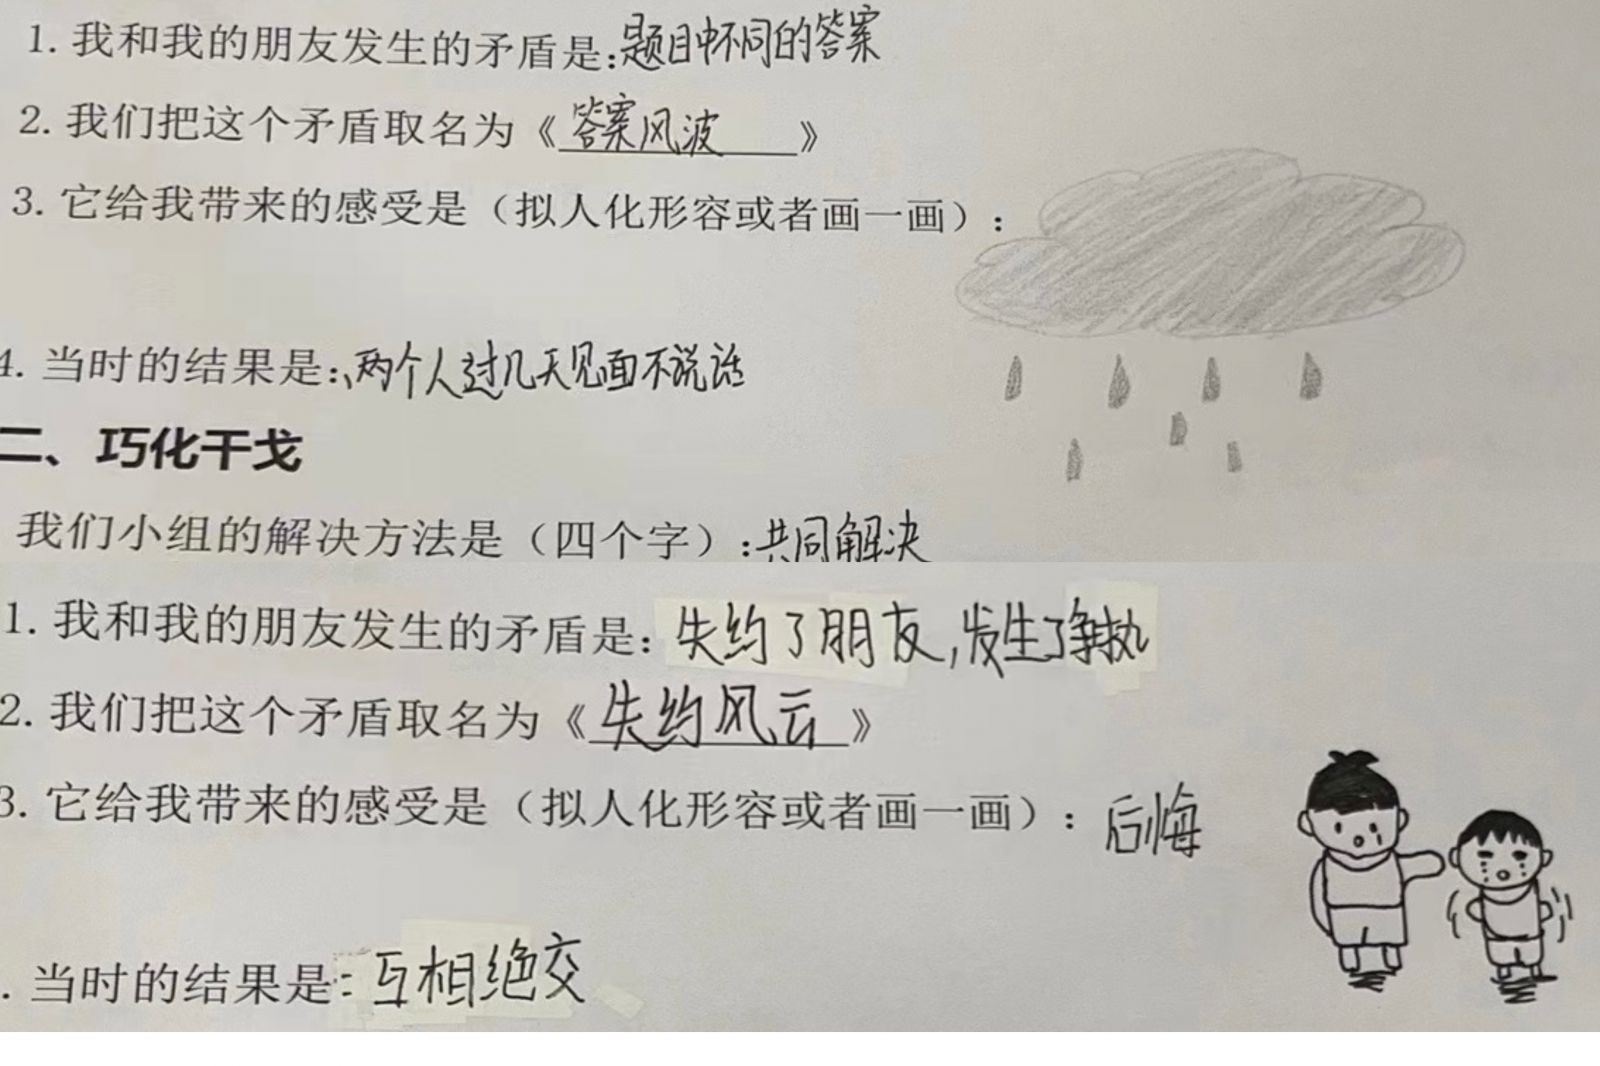 1. 我和我的朋友发生的矛盾是:题目中不同的答案
2. 我们把这个矛盾取名为《答案风波》
3. 它给我带来的感受是（拟人化形容或者画一画）:
4. 当时的结果是:、两个人过几天见面不说话
二、巧化干戈
我们小组的解决方法是（四个字）:共同解决
1. 我和我的朋友发生的矛盾是: 失约了朋友,发生了争执
2. 我们把这个矛盾取名为《失约风云》
3. 它给我带来的感受是（拟人化形容或者画一画）: 后悔
. 当时的结果是: 互相绝交